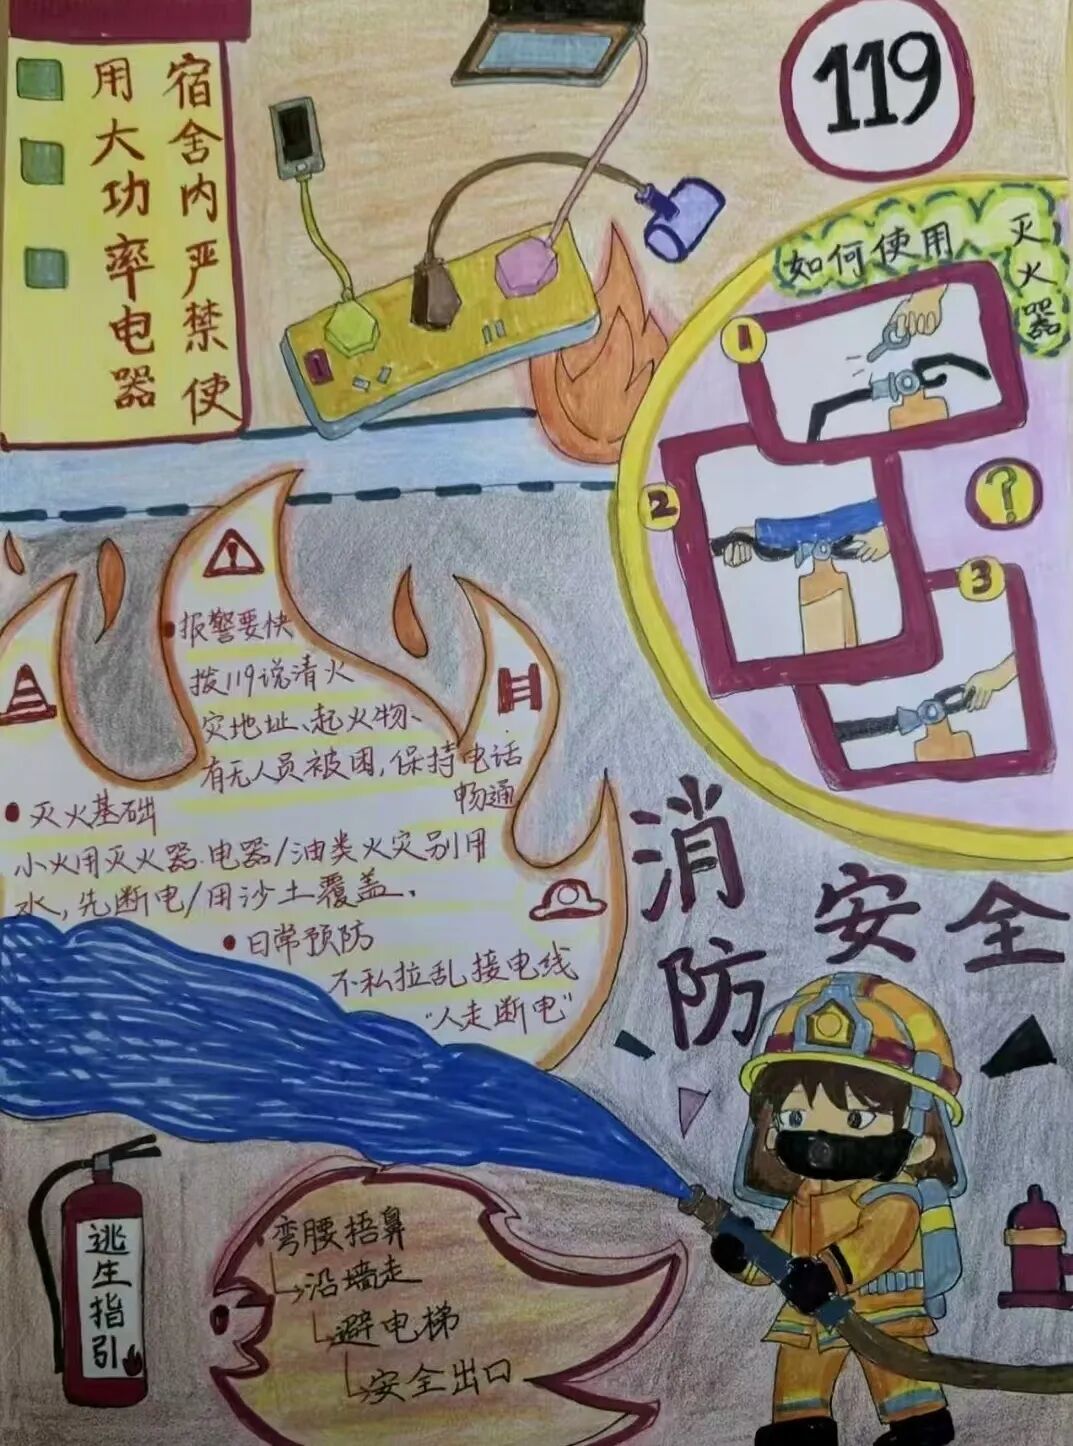 宿舍内严禁使
用大功率电器
119
如何使用
灭火器
1
2
3
?
报警要快
拨119说清火
灾地址、起火物、
有无人员被困,保持电话
畅通
灭火基础
小火用灭火器.电器/油类火灾别用
水,先断电/用沙土覆盖.
日常预防
不私拉乱接电线
"人走断电"
消防安全
逃生指引
弯腰捂鼻
沿墙走
避电梯
安全出口